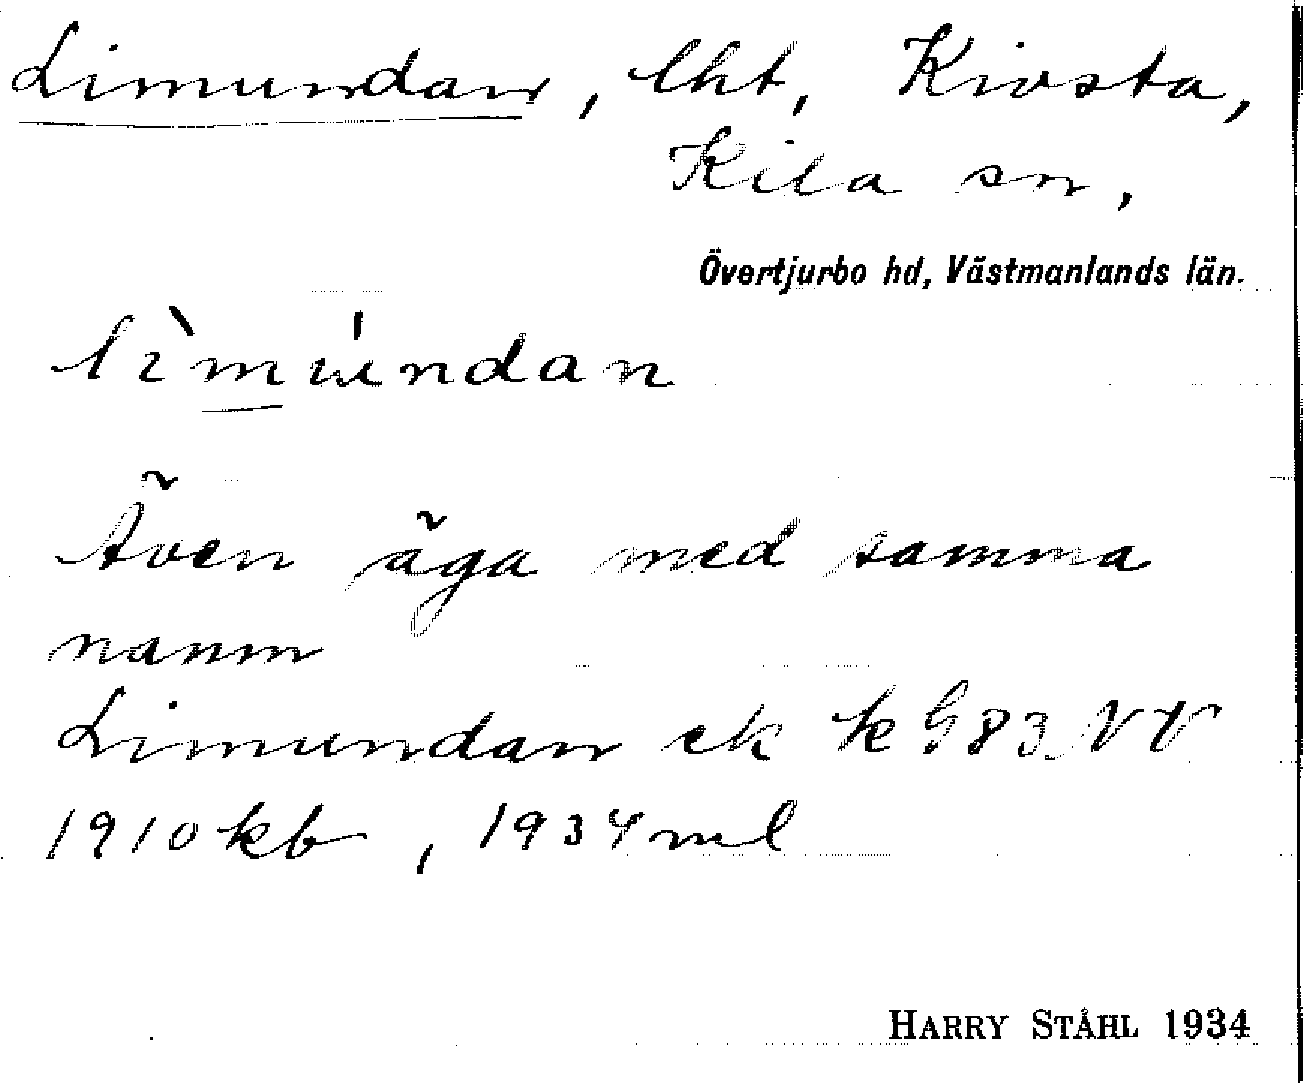 Limundan, lht, Kivsta,
Kila sn,
Övertjurbo hd, Västmanlands län.
lìmúndan
Även äga med samma
namn
Limundan ek k G83 NV
1910 kb, 1934 ml
HARRY STÅHL 1934